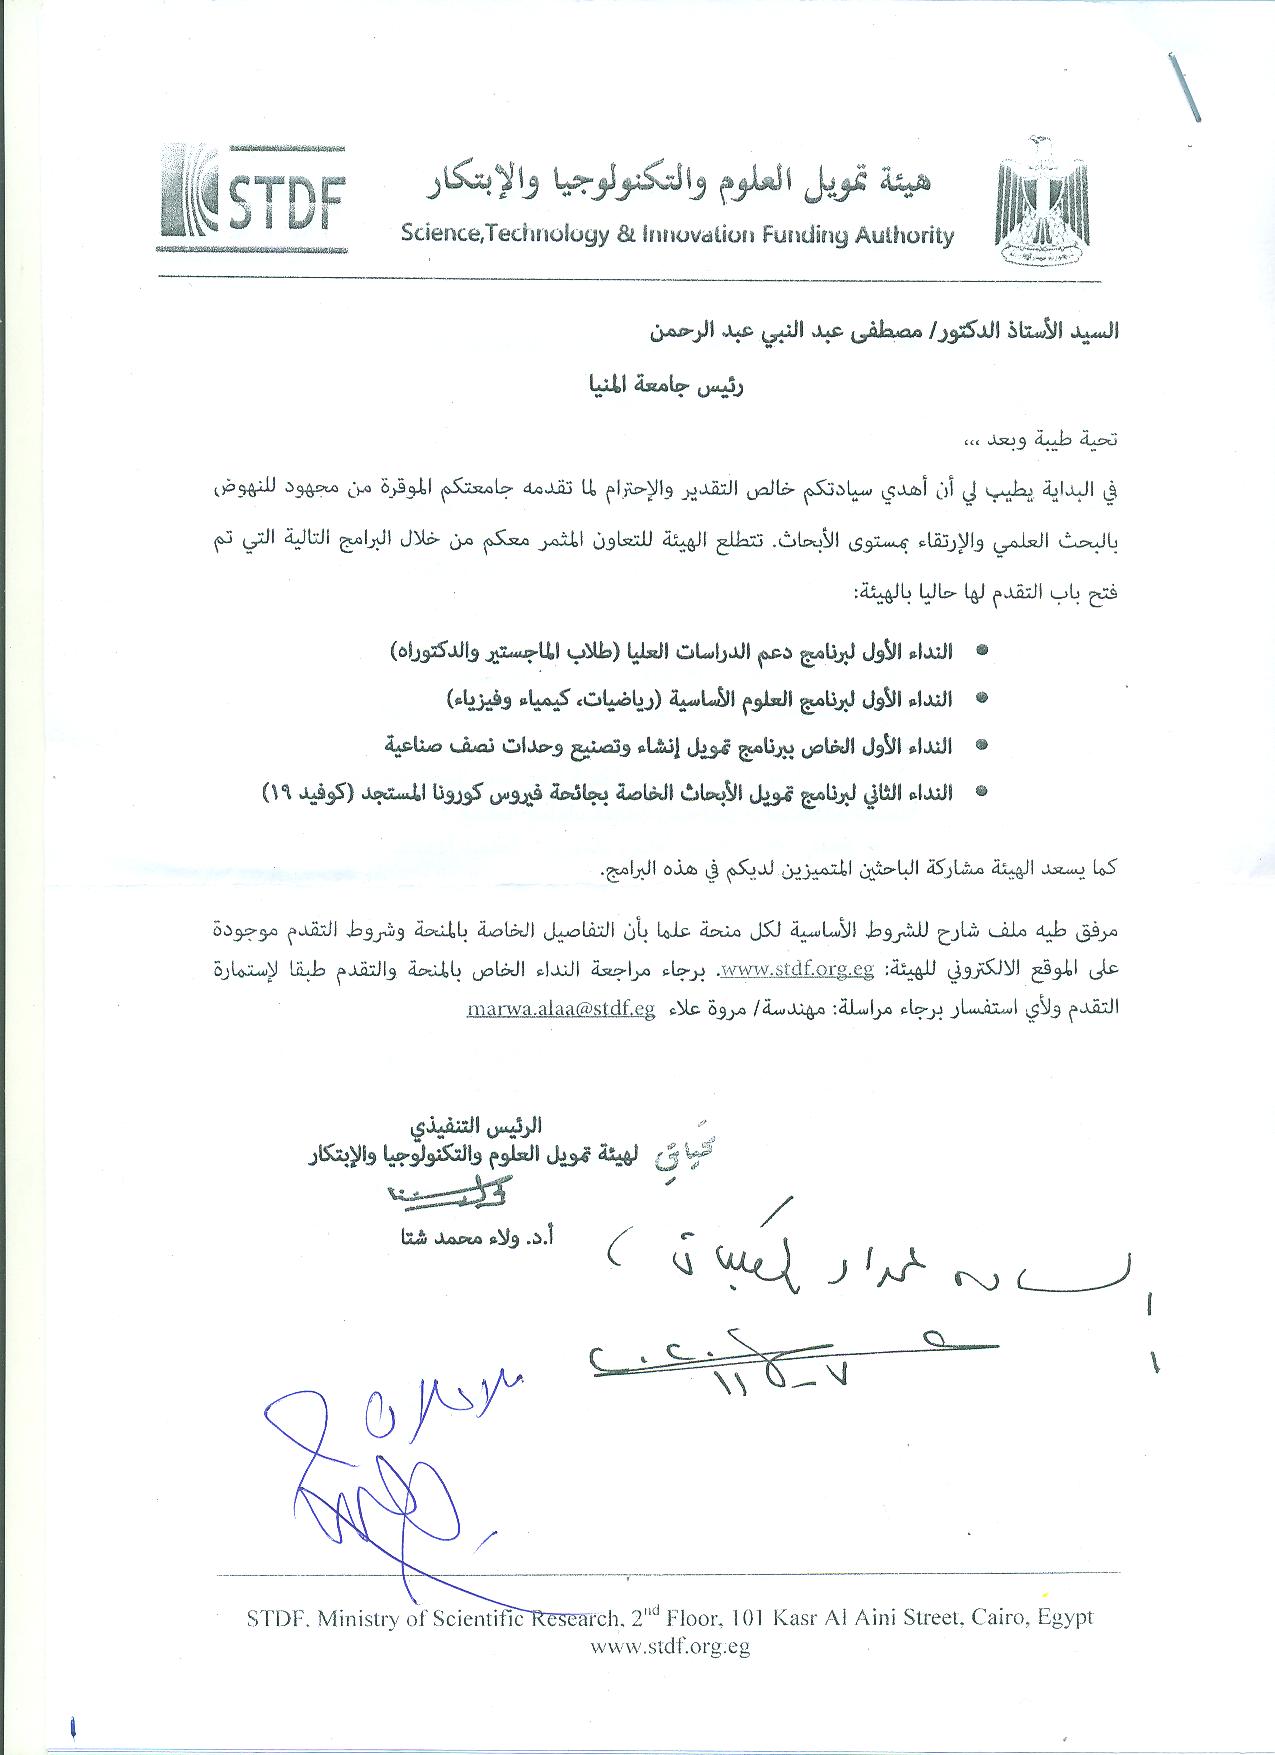 STDF
هيئة تمويل العلوم والتكنولوجيا والإبتكار
Science,Technology & Innovation Funding Authority
السيد الأستاذ الدكتور/ مصطفى عبد النبي عبد الرحمن
رئيس جامعة المنيا
تحية طيبة وبعد ،،،
في البداية يطيب لي أن أهدي سيادتكم خالص التقدير والإحترام لما تقدمه جامعتكم الموقرة من مجهود للنهوض
بالبحث العلمي والإرتقاء بمستوى الأبحاث. تتطلع الهيئة للتعاون المثمر معكم من خلال البرامج التالية التي تم
فتح باب التقدم لها حاليا بالهيئة:
• النداء الأول لبرنامج دعم الدراسات العليا (طلاب الماجستير والدكتوراه)
• النداء الأول لبرنامج العلوم الأساسية (رياضيات، كيمياء وفيزياء)
• النداء الأول الخاص ببرنامج تمويل إنشاء وتصنيع وحدات نصف صناعية
• النداء الثاني لبرنامج تمويل الأبحاث الخاصة بجائحة فيروس كورونا المستجد (كوفيد ١٩)
كما يسعد الهيئة مشاركة الباحثين المتميزين لديكم في هذه البرامج.
مرفق طيه ملف شارح للشروط الأساسية لكل منحة علما بأن التفاصيل الخاصة بالمنحة وشروط التقدم موجودة
على الموقع الالكتروني للهيئة: www.stdf.org.eg. برجاء مراجعة النداء الخاص بالمنحة والتقدم طبقا لإستمارة
التقدم ولأي استفسار برجاء مراسلة: مهندسة/ مروة علاء marwa.alaa@stdf.eg
الرئيس التنفيذي
لهيئة تمويل العلوم والتكنولوجيا والإبتكار
أ.د. ولاء محمد شتا
STDF, Ministry of Scientific Research, 2nd Floor, 101 Kasr Al Aini Street, Cairo, Egypt
www.stdf.org.eg